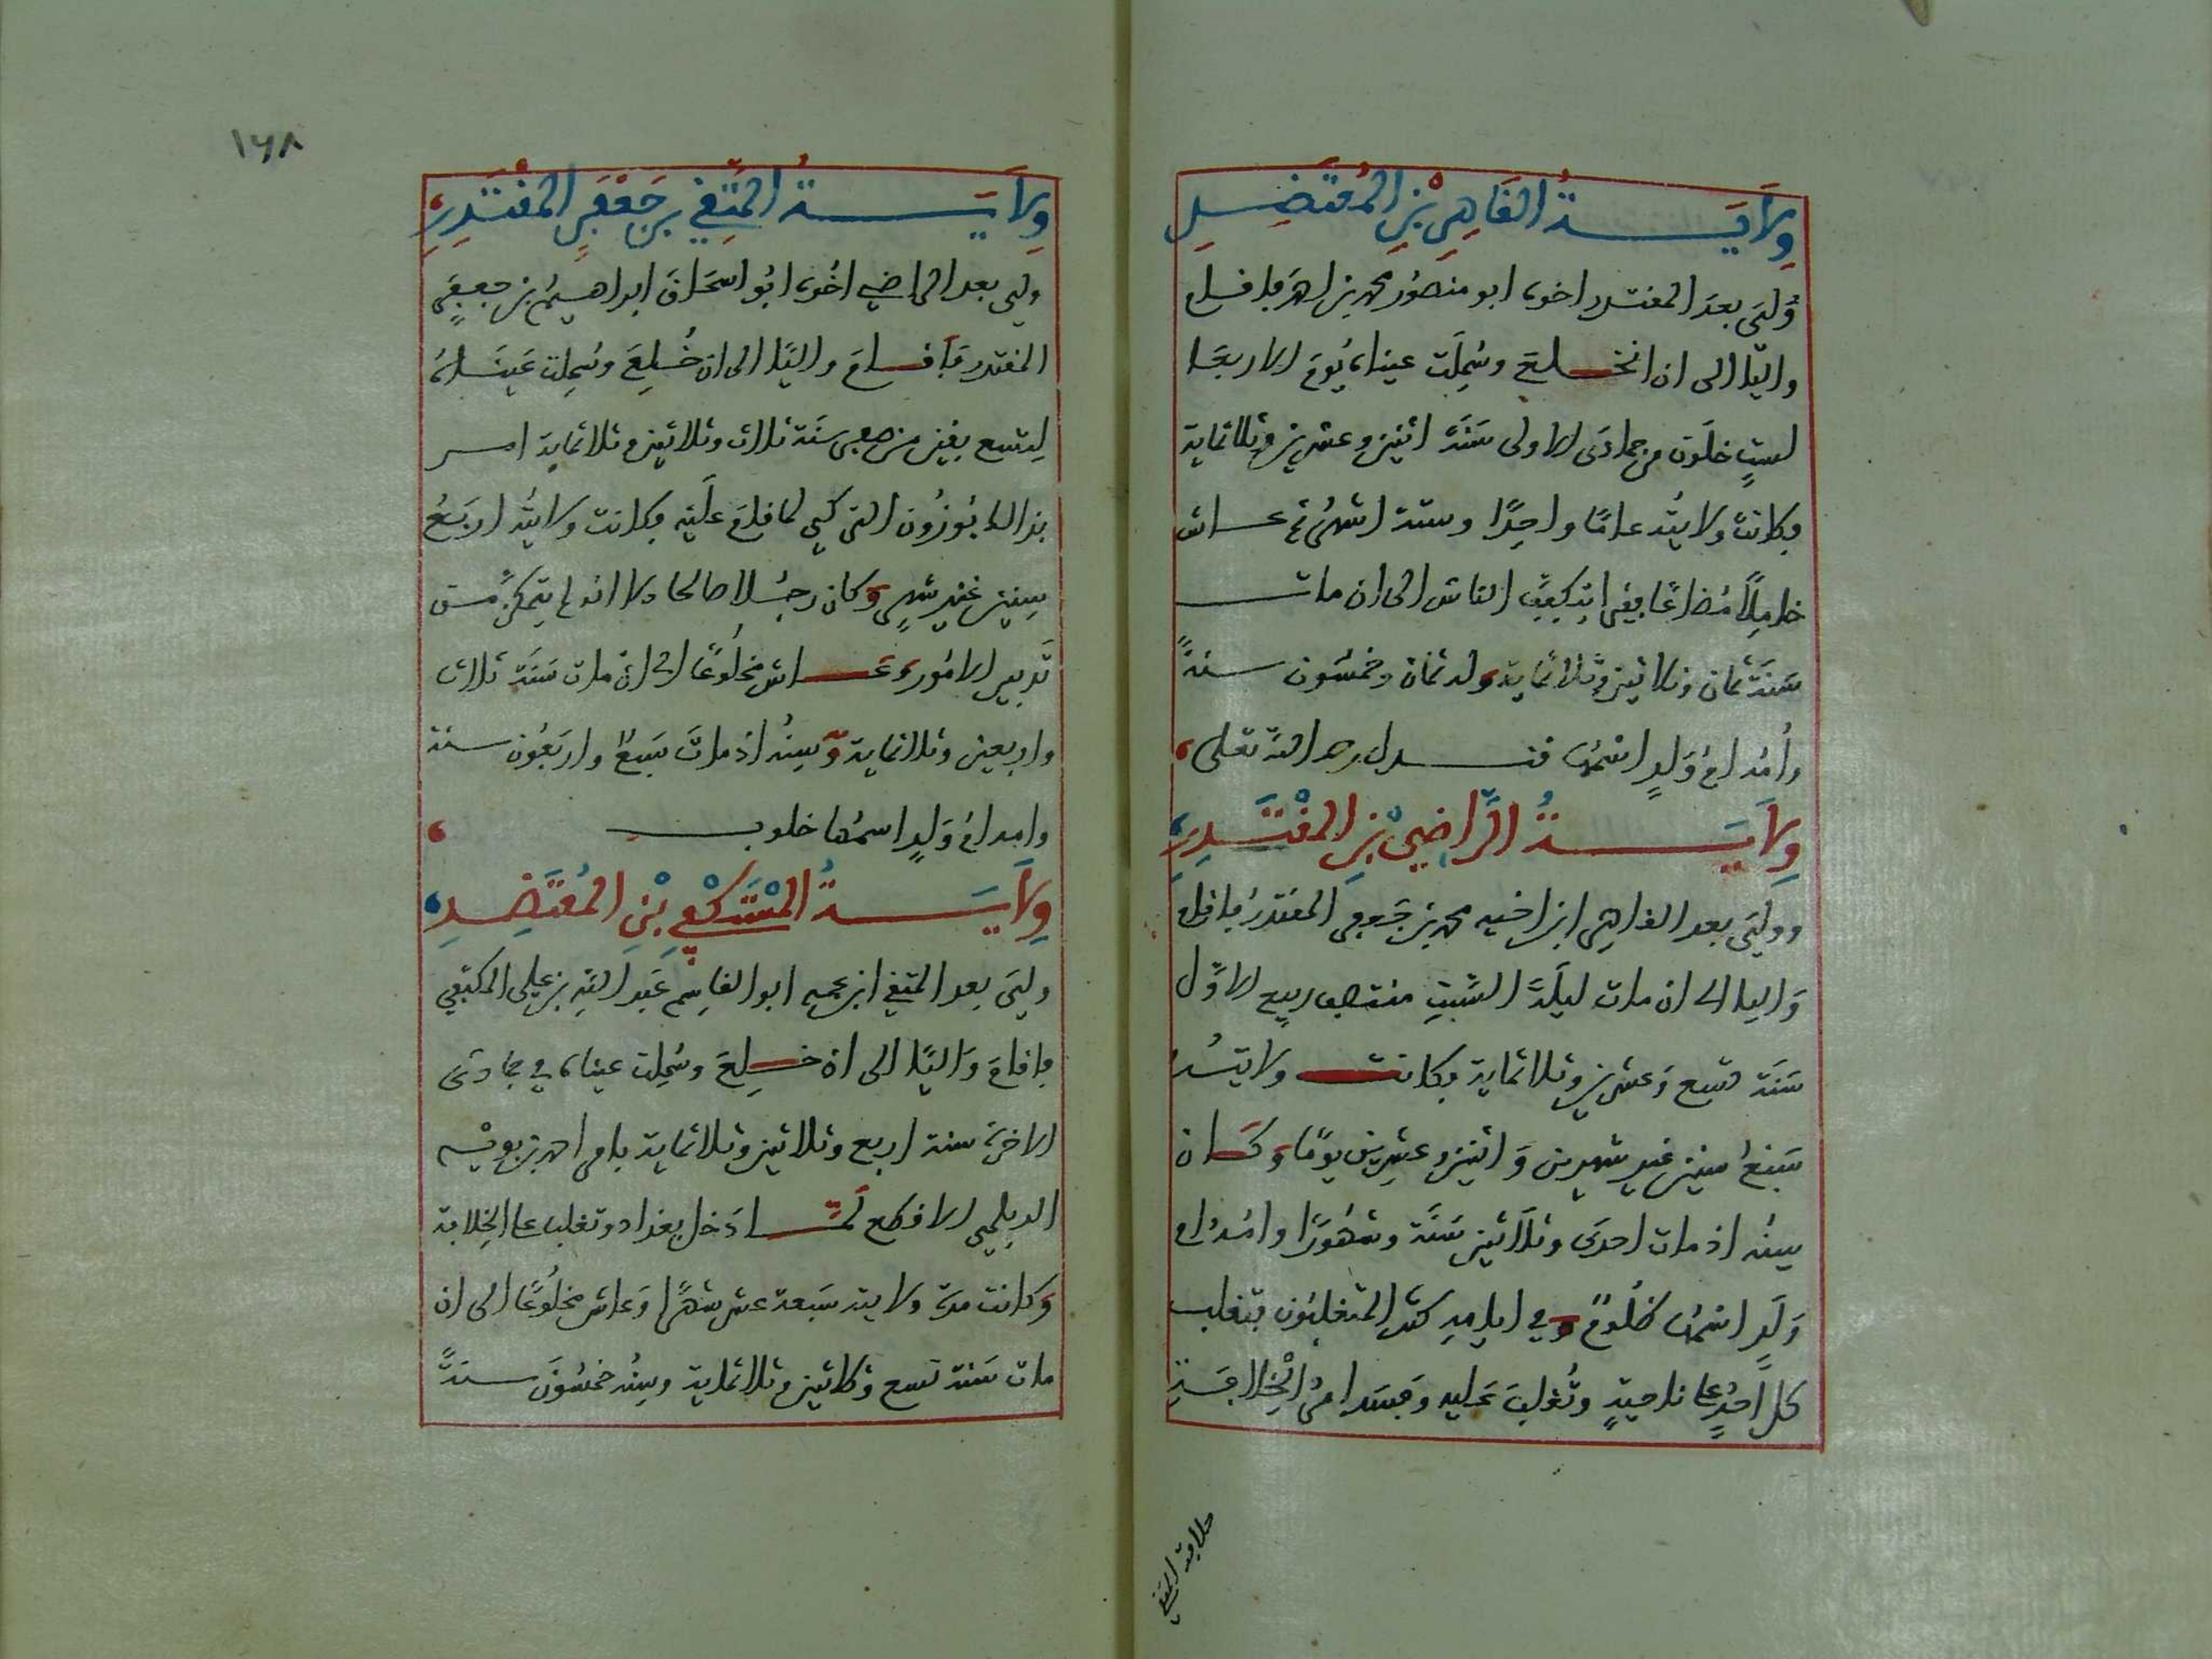 وِلَايَـــةُ القَاهِرِ بْنِ المُعْتَضِـدِ
وُلِيَ بعدَ المقتدر اخوه ابو منصُور محمد بن احمد فاقام
واليًا الى ان انخـلعَ وسُمِلَت عيناه يُومَ الاربعَا
لستٍ خلَون من جمادَى الاولى سَنَة اثنين وعشرين وثلاثماية
فكانت ولايتُه عامًا واحِدًا وستة اشهُر ثم عـاش
خامِلًا مُضاعًا يتكفِفُ الناس الى ان مات
سَنَة ثمان وثلاثين وثلاثماية وله ثمان وخمسُون سنةً
وأمُه امُ وَلدٍ اسْمُهَا فتـول رحمه الله تعلى
وِلَايَـــةُ الرَّاضِيْ بْنِ المُقْتَـدِرِ
ووليَ بعد القاهِر ابن اخيه محمد بن جَعفر المقتدرُ فاقام
وَاليا الى ان مات ليلَة السَّبتِ منتصف ربيع الاوَّل
سَنَة تسع وَعشرين وثلاثماية فكانت ولايتـُه
سَبْعَ سنين غير شهرين وَاثنين وعشرين يومًا وَكـان
سِنُه اذ مات احدَى وثلَاثين سَنَة وشهُورًا وامُه ام
وَلَدٍ اسْمُهَا ظلُومٌ وفي ايامِه كثر المتغلبُون فتغلب
كل أحدٍ على ناحيةٍ وتُغلِبَ عليه وَفسَد امرُ الخِلافَـةِ
خلافة المتقي
١٦٨
وِلَايَـــةُ المُتَّقِي بن جَعْفَرِ المُقْتَدِرِ
ولي بعد الراضي اخُوه ابُو اسحَاق ابراهـيمُ بن جعفرٍ
المقتدر فَاقـامَ واليًا الى ان خُـلِعَ وسُمِلت عَينَـاهُ
لِتسع بقين من صفر سَنَة ثلاث وثلاثين وثلاثماية امـر
بذالك تُوزُون التركي لما قامَ علَيْهِ فكانت ولايتُه اربَعُ
سِنين غَير شهرٍ وكان رجُـلا صالحا الا انه لم يتمكن مـن
تَدبير الامُور وَعَـاش مخلُوعًا الى ان مات سَنَة ثلاث
واربعين وثلاثماية وَسِنُه اذ ماتَ سَبعٌ واربَعُون سنة
وامه امُ وَلدٍ اسمُها خلوب
وِلَايَـــةُ المُسْتَكْفِي بْنِ المُعْتَضِـدِ
وليَ بعد المتقي ابن عمِه ابو القاسِم عَبد اللّه بن علي المكتفي
فاقامَ وَاليًا الى ان خـلِعَ وسُمِلت عيناه في جمادَى
الاخرَة سنة اربع وثلاثين وثلاثماية بامر احمد بن بويْـه
الديلمي الاقطع لَمَّـا دَخل بغداد وتغلب على الخِلافة
وَكانت مدة ولايته سَبعة عشر شهرًا وَعاش مخلُوعًا الى ان
مات سَنة تسع وثلاثين وثلاثماية وسِنُه خمسُونَ سنةً